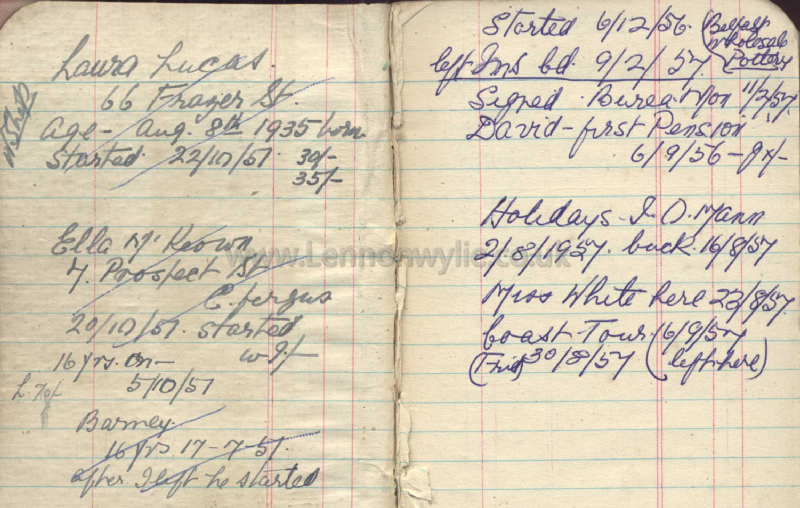 Laura Lucas.
66 Frazer St.
Age - Aug. 8th 1935 born
Started 22/10/51 30/-
35/-
Ella McKeown
7. Prospect St
C. fergus
20/10/51. started
16 yrs. on -
5/10/51
Barney.
16 yrs 17-7-51.
after I left he started
Started 6/12/56 (Belfast
wholesale
Pottery
left Ins bd. 9/2/57.
Signed Bureau Mon 11/2/57.
David - first Pension
6/9/56 -
Holidays - I. O. Mann
2/8/1957. back 16/8/57
www.Lennonwylie.co.uk
Miss White here 23/8/57.
Coast Tour.
(Frid) 30/8/57 (left here)